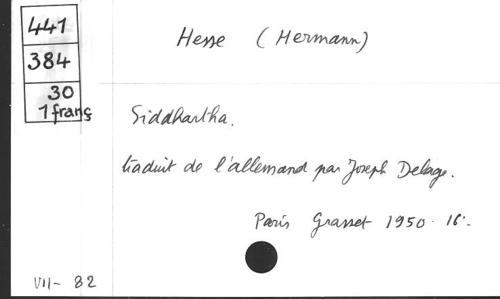 441
384
30
1 franç
Hesse (Hermann)
Siddhartha.
traduit de l'allemand par Joseph Delage.
Paris Grasset 1950. 16°.
VII- 82